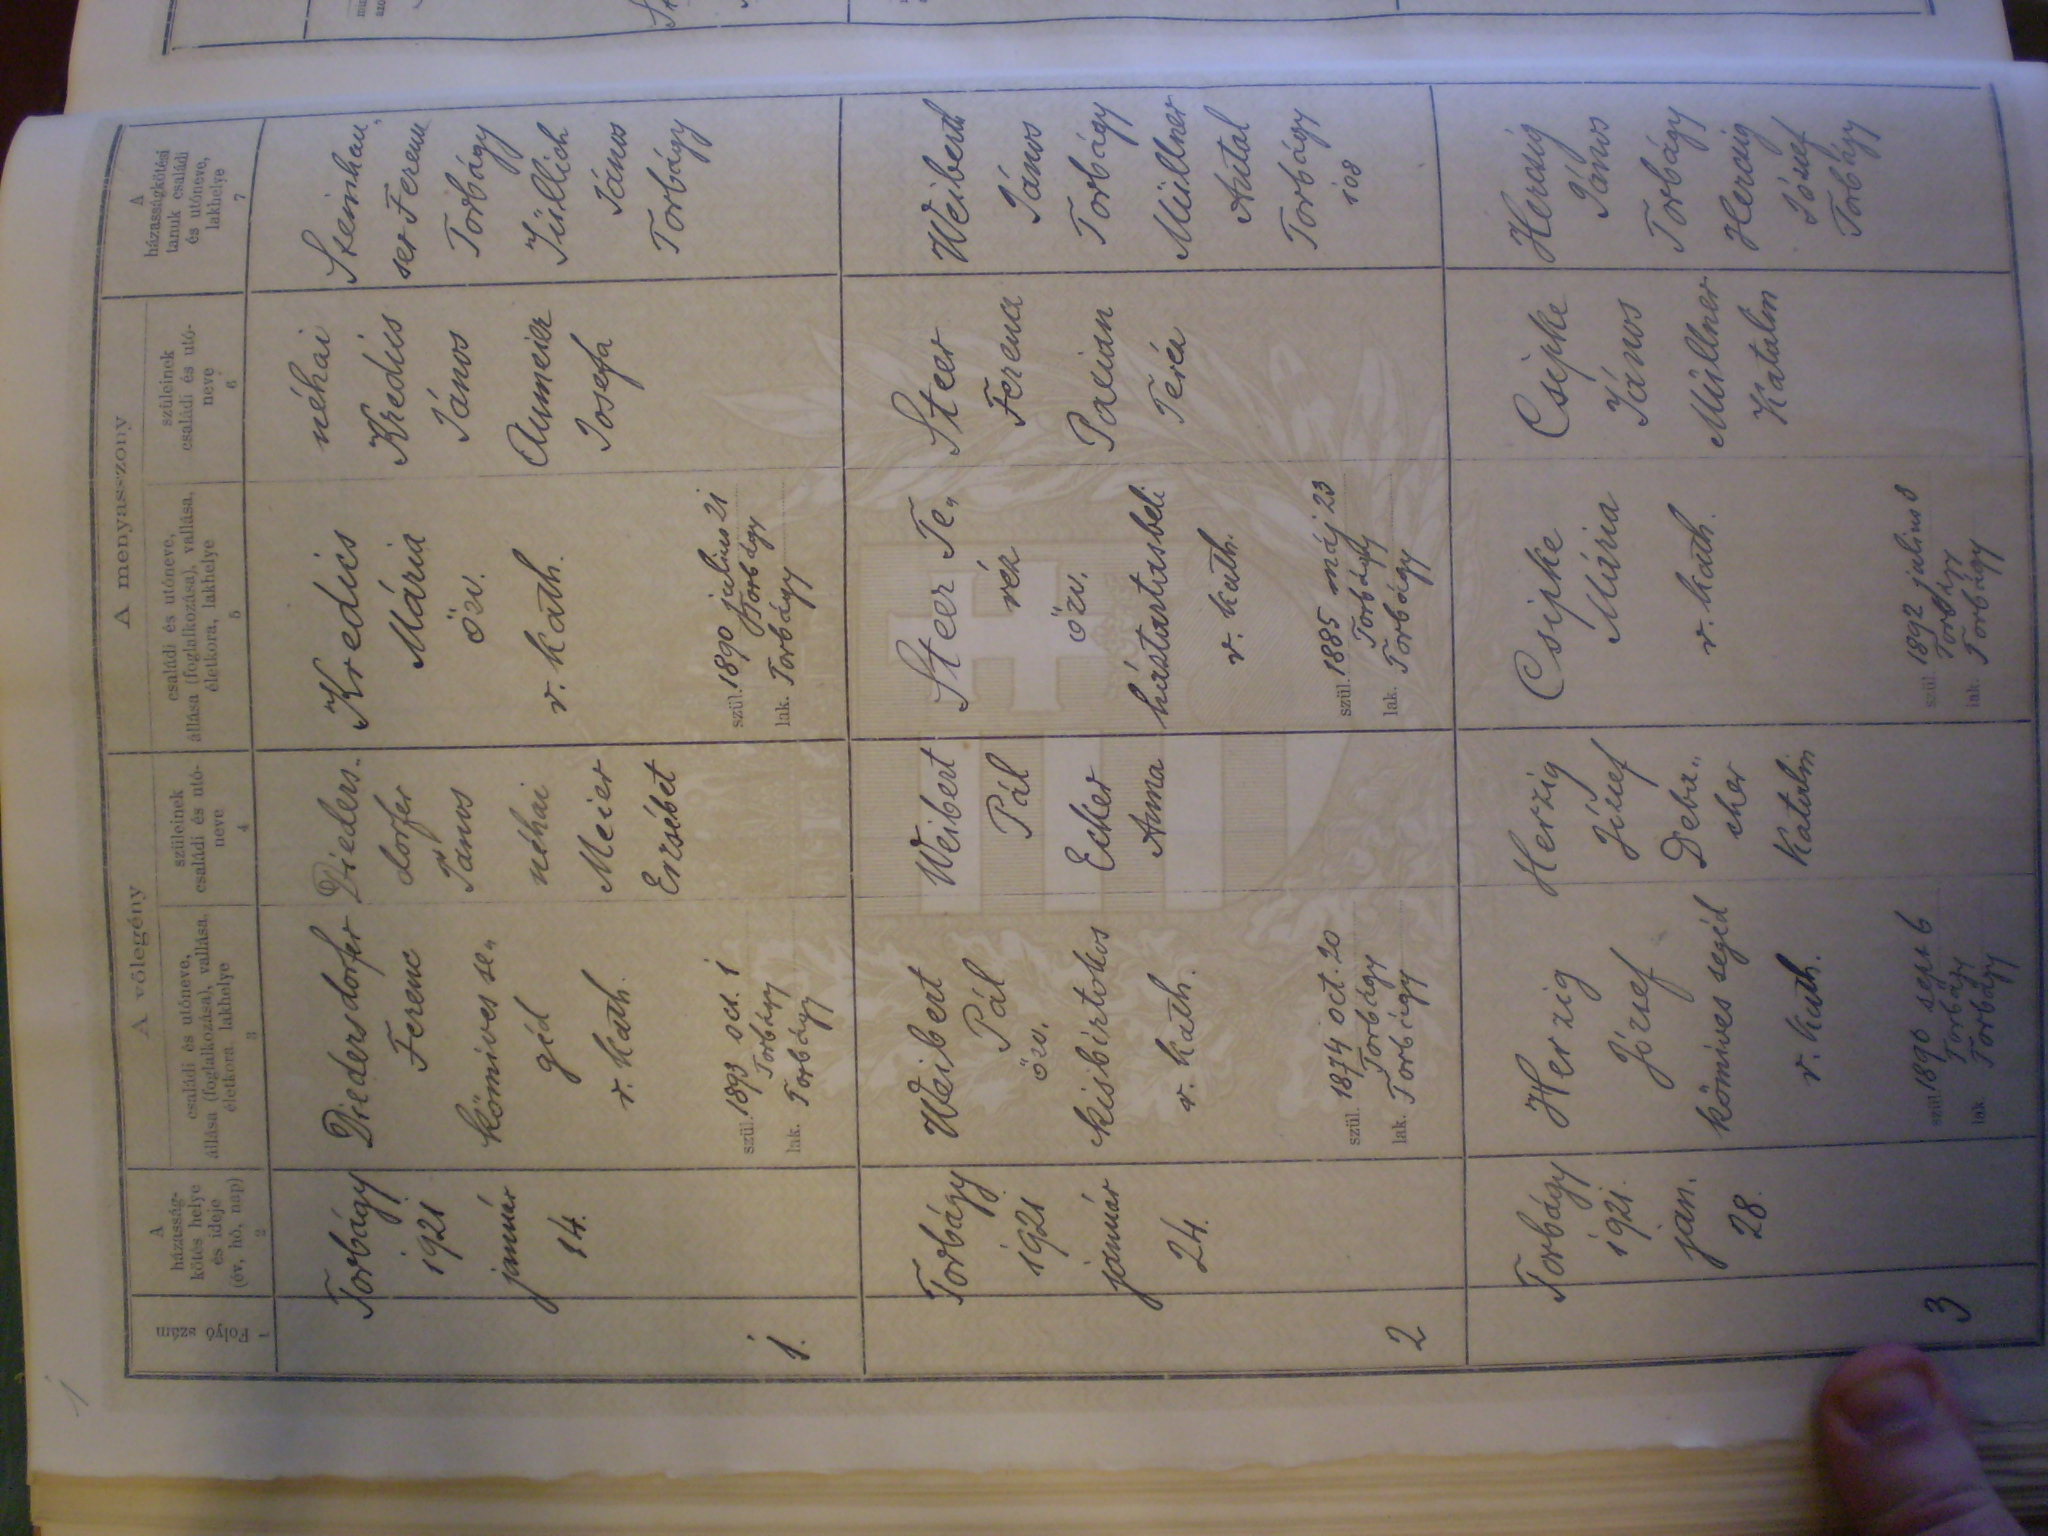 1
Folyó szám
1
A házasság-
kötés helye
és ideje
(év, hó, nap)
2
A vőlegény
családi és utóneve,
állása (foglalkozása), vallása,
életkora, lakhelye
3
szüleinek
családi és utó-
neve
4
A menyasszony
családi és utóneve,
állása (foglalkozása), vallása,
életkora, lakhelye
5
szüleinek
családi és utó-
neve
6
A
házasságkötési
tanuk családi
és utóneve,
lakhelye
7
1.
Torbágy
1921
január
14.
Diedersdorfer
Ferenc
kőmives se„
géd
r. kath.
szül. 1893 oct. 1
Torbágy
lak. Torbágy
Dieders-
dorfer
János
néhai
Meier
Erzsébet
Kredics
Mária
özv.
r. kath.
szül. 1890 julius 21
Torbágy
lak. Torbágy
néhai
Kredics
János
Aumeier
Josefa
Steinhau„
ser Ferenc
Torbágy
Jüllich
János
Torbágy
2
Torbágy
1921
január
24.
Weibert
Pál
özv.
kisbirtokos
r. kath.
szül. 1874 oct. 20
Torbágy
lak. Torbágy
Weibert
Pál
Ecker
Anna
Steer Te„
réz
özv.
háztartásbeli
r. kath.
szül. 1885 máj 23
Torbágy
lak. Torbágy
Steer
Ferenc
Paxian
Teréz
Weiberth
János
Torbágy
Müllner
Antal
Torbágy
108
3
Torbágy
1921.
jan.
28.
Herzig
József
kőmives segéd
r. kath.
szül. 1890 sept 6
Torbágy
lak Torbágy
Herzig
József
Debz„
cher
Katalin
Csipke
Mária
r. kath.
szül. 1892 julius 3
Torbágy
lak. Torbágy
Csipke
János
Müllner
Katalin
Herzig
János
Torbágy
Herzig
József
Torbágy